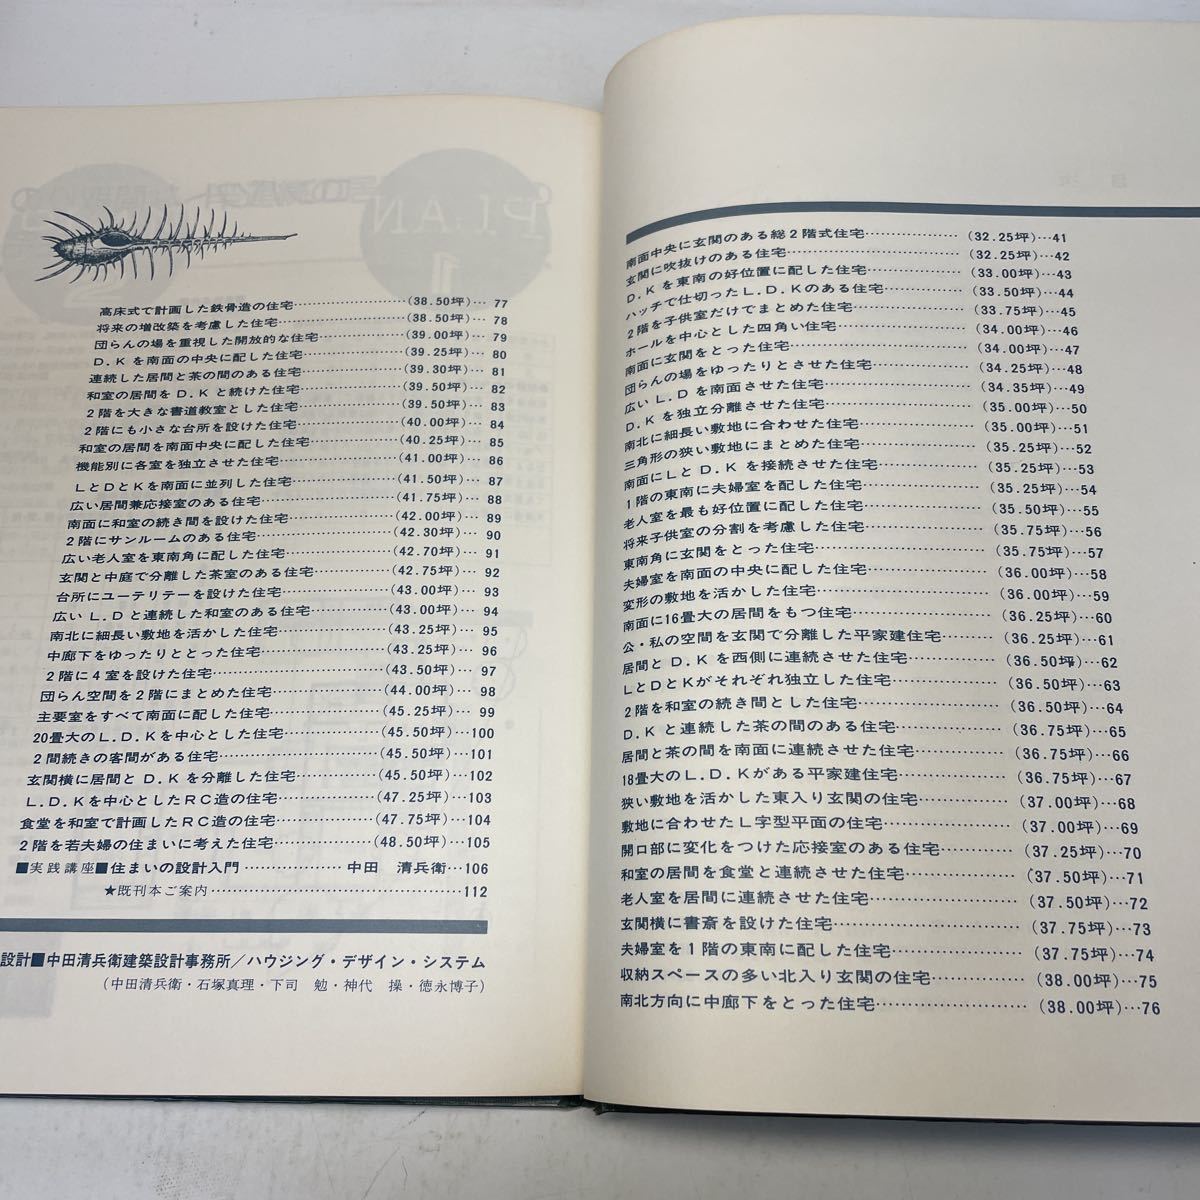 南面中央に玄関のある総2階式住宅………………(32.25坪)…41
玄関に吹抜けのある住宅………………(32.25坪)…42
D.Kを東南の好位置に配した住宅………………(33.00坪)…43
ハッチで仕切ったL.D.Kのある住宅………………(33.50坪)…44
2階を子供室だけでまとめた住宅………………(33.75坪)…45
ホールを中心とした四角い住宅………………(34.00坪)…46
南面に玄関をとった住宅………………(34.00坪)…47
団らんの場をゆったりとさせた住宅………………(34.25坪)…48
広いL.Dを南面させた住宅………………(34.35坪)…49
D.Kを独立分離させた住宅………………(35.00坪)…50
南北に細長い敷地に合わせた住宅………………(35.00坪)…51
三角形の狭い敷地にまとめた住宅………………(35.25坪)…52
南面にLとD.Kを接続させた住宅………………(35.25坪)…53
1階の東南に夫婦室を配した住宅………………(35.25坪)…54
老人室を最も好位置に配した住宅………………(35.50坪)…55
将来子供室の分割を考慮した住宅………………(35.75坪)…56
東南角に玄関をとった住宅………………(35.75坪)…57
夫婦室を南面の中央に配した住宅………………(36.00坪)…58
変形の敷地を活かした住宅………………(36.00坪)…59
南面に16畳大の居間をもつ住宅………………(36.25坪)…60
公・私の空間を玄関で分離した平家建住宅………(36.25坪)…61
居間とD.Kを西側に連続させた住宅………………(36.50坪)…62
LとDとKがそれぞれ独立した住宅………………(36.50坪)…63
2階を和室の続き間とした住宅………………(36.50坪)…64
D.Kと連続した茶の間のある住宅………………(36.75坪)…65
居間と茶の間を南面に連続させた住宅………………(36.75坪)…66
18畳大のL.D.Kがある平家建住宅………………(36.75坪)…67
狭い敷地を活かした東入り玄関の住宅………………(37.00坪)…68
敷地に合わせたL字型平面の住宅………………(37.00坪)…69
開口部に変化をつけた応接室のある住宅…………(37.25坪)…70
和室の居間を食堂と連続させた住宅………………(37.50坪)…71
老人室を居間に連続させた住宅………………(37.50坪)…72
玄関横に書斎を設けた住宅………………(37.75坪)…73
夫婦室を1階の東南に配した住宅………………(37.75坪)…74
収納スペースの多い北入り玄関の住宅……………(38.00坪)…75
南北方向に中廊下をとった住宅………………(38.00坪)…76
高床式で計画した鉄骨造の住宅………………(38.50坪)…77
将来の増改築を考慮した住宅………………(38.50坪)…78
団らんの場を重視した開放的な住宅………………(39.00坪)…79
D.Kを南面の中央に配した住宅………………(39.25坪)…80
連続した居間と茶の間のある住宅………………(39.30坪)…81
和室の居間をD.Kと続けた住宅………………(39.50坪)…82
2階を大きな書道教室とした住宅………………(39.50坪)…83
2階にも小さな台所を設けた住宅………………(40.00坪)…84
和室の居間を南面中央に配した住宅………………(40.25坪)…85
機能別に各室を独立させた住宅………………(41.00坪)…86
LとDとKを南面に並列した住宅………………(41.50坪)…87
広い居間兼応接室のある住宅………………(41.75坪)…88
南面に和室の続き間を設けた住宅………………(42.00坪)…89
2階にサンルームのある住宅………………(42.30坪)…90
広い老人室を東南角に配した住宅………………(42.70坪)…91
玄関と中庭で分離した茶室のある住宅……………(42.75坪)…92
台所にユーテリテーを設けた住宅………………(43.00坪)…93
広いL.Dと連続した和室のある住宅………………(43.00坪)…94
南北に細長い敷地を活かした住宅………………(43.25坪)…95
中廊下をゆったりととった住宅………………(43.25坪)…96
2階に4室を設けた住宅………………(43.50坪)…97
団らん空間を2階にまとめた住宅………………(44.00坪)…98
主要室をすべて南面に配した住宅………………(45.25坪)…99
20畳大のL.D.Kを中心とした住宅………………(45.50坪)…100
2間続きの客間がある住宅………………(45.50坪)…101
玄関横に居間とD.Kを分離した住宅………………(45.50坪)…102
L.D.Kを中心としたRC造の住宅………………(47.25坪)…103
食堂を和室で計画したRC造の住宅………………(47.75坪)…104
2階を若夫婦の住まいに考えた住宅………………(48.50坪)…105
■実践講座■住まいの設計入門………………中田 清兵衛…106
★既刊本ご案内………………………………112
設計■中田清兵衛建築設計事務所/ハウジング・デザイン・システム
(中田清兵衛・石塚真理・下司 勉・神代 操・徳永博子)